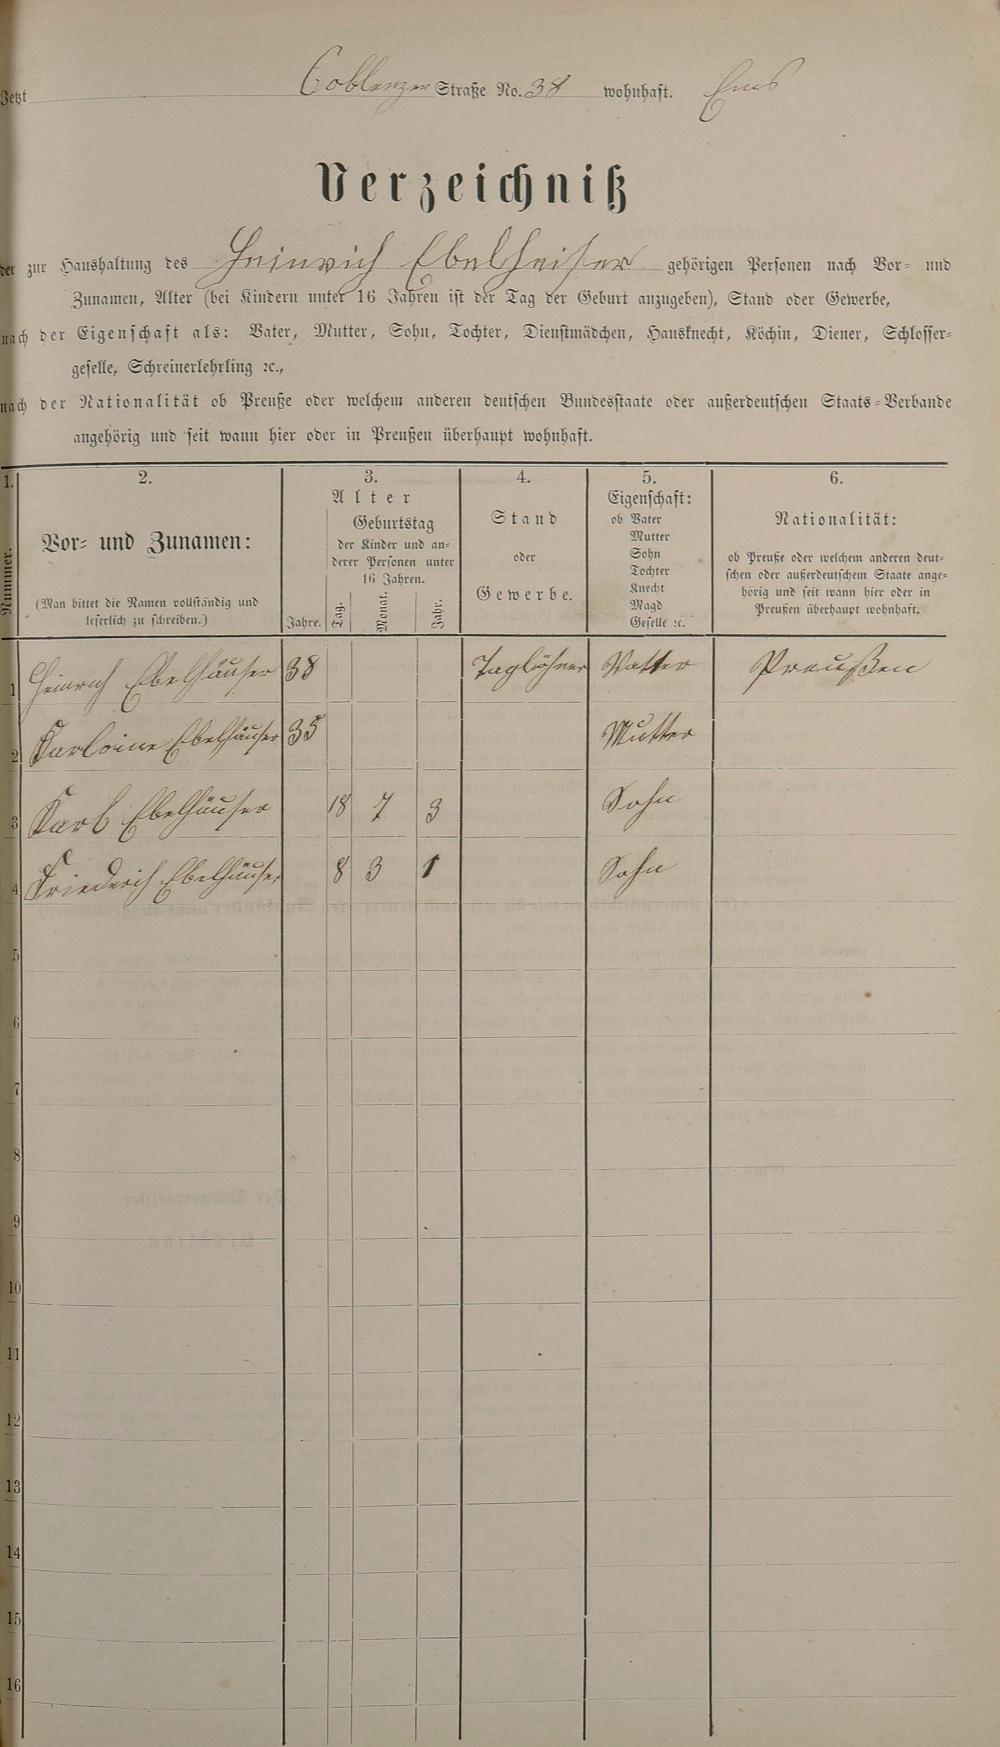 Jetzt Coblenzer Straße No. 38 wohnhaft. Ems
Verzeichniß
der zur Haushaltung des Heinrich Ebelheiser gehörigen Personen nach Vor- und
Zunamen, Alter (bei Kindern unter 16 Jahren ist der Tag der Geburt anzugeben), Stand oder Gewerbe,
nach der Eigenschaft als: Vater, Mutter, Sohn, Tochter, Dienstmädchen, Hausknecht, Köchin, Diener, Schlosser-
geselle, Schreinerlehrling ꝛc.,
nach der Nationalität ob Preuße oder welchem anderen deutschen Bundesstaate oder außerdeutschen Staats-Verbande
angehörig und seit wann hier oder in Preußen überhaupt wohnhaft.
1. 2. 3. 4. 5. 6.
Nummer.
Vor- und Zunamen:
(Man bittet die Namen vollständig und
leserlich zu schreiben.)
Alter
Geburtstag
der Kinder und an-
derer Personen unter
16 Jahren.
Jahre. Tag. Monat. Jahr.
Stand
oder
Gewerbe.
Eigenschaft:
ob Vater
Mutter
Sohn
Tochter
Knecht
Magd
Geselle ꝛc.
Nationalität:
ob Preuße oder welchem anderen deut-
schen oder außerdeutschem Staate ange-
hörig und seit wann hier oder in
Preußen überhaupt wohnhaft.
1 Heinrich Ebelhäuser 38 Taglöhner Vatter Preußen
2 Karloine Ebelhäuser 35 Mutter
3 Karl Ebelhäuser 18 7 3 Sohn
4 Friederich Ebelhäuser 8 3 1 Sohn
5
6
7
8
9
10
11
12
13
14
15
16